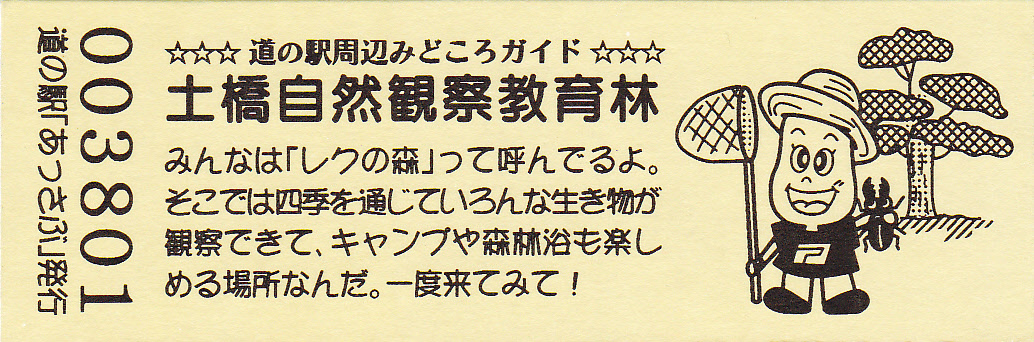 ☆☆☆ 道の駅周辺みどころガイド ☆☆☆
土橋自然観察教育林
みんなは「レクの森」って呼んでるよ。
そこでは四季を通じていろんな生き物が
観察できて、キャンプや森林浴も楽し
める場所なんだ。一度来てみて！
003801
道の駅「あっさぶ」発行